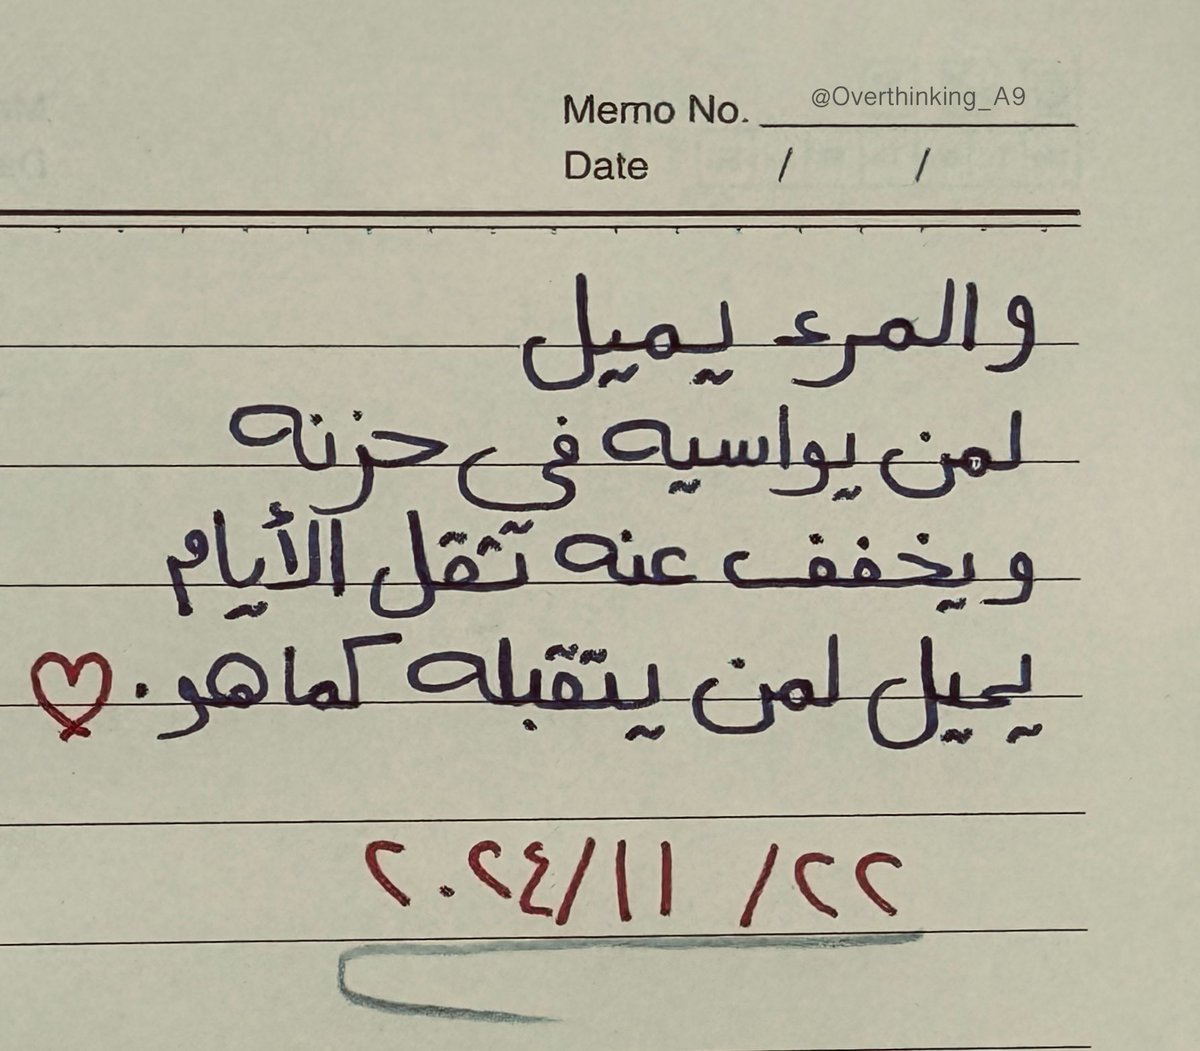 Memo No. @Overthinking_A9
Date / /
والمرء يميل
لمن يواسيه في حزنه
ويخفف عنه ثقل الأيام
يميل لمن يتقبله كما هو.
٢٢/ ١١/٢٠٢٤